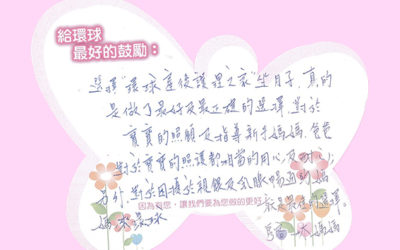 給環球
最好的鼓勵:
選擇"環球產後護理之家"坐月子,真的
是做了最好及最正確的選擇,對於
寶寶的照顧及指導新手媽媽、爸爸
對於寶寶的照護都相當的用心及
另外,對於困擾於親餵及乳腺暢通的媽
因為有您,讓我們要為您做的更好
媽 來環球 是最正確的選擇
媽媽